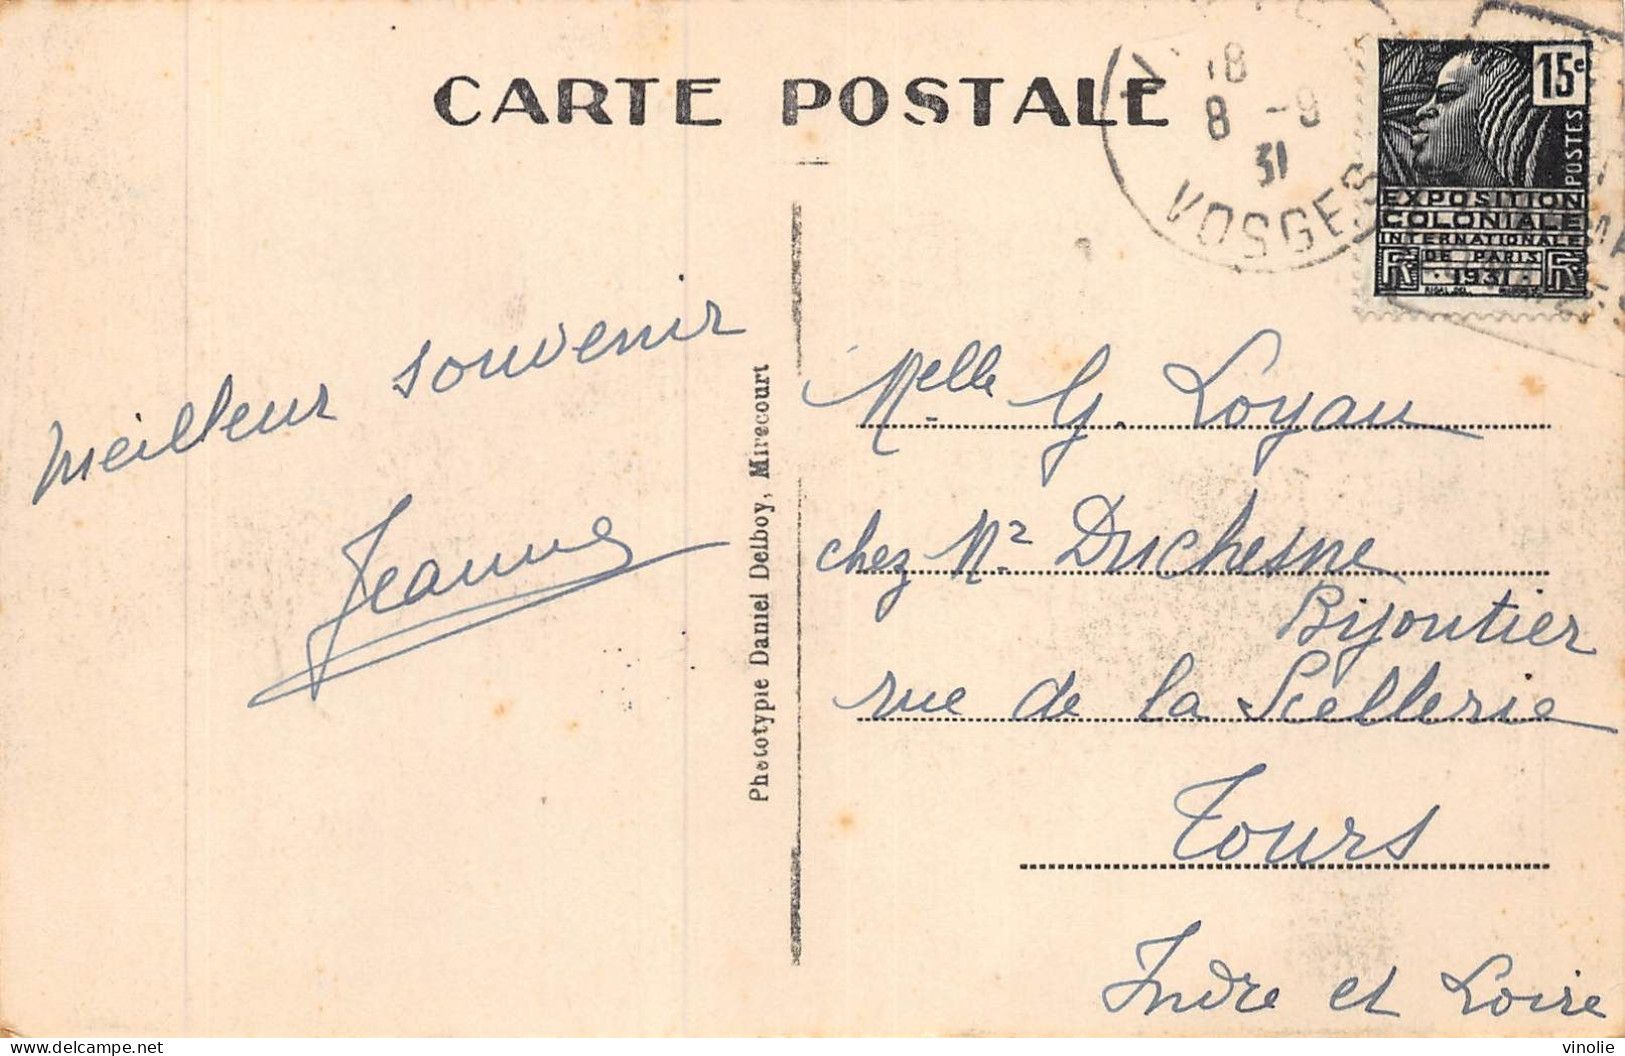 CARTE POSTALE
18
8 - 9
31
VOSGES
15c
POSTES
EXPOSITION
COLONIALE
INTERNATIONALE
DE PARIS
RF · 1931 · RF
meilleur souvenir
Jeanne
Phototypie Daniel Delboy, Mirecourt
Melle G. Loyau
chez Mr Duchesne
Bijoutier
rue de la Scellerie
Tours
Indre et Loire
vinolie